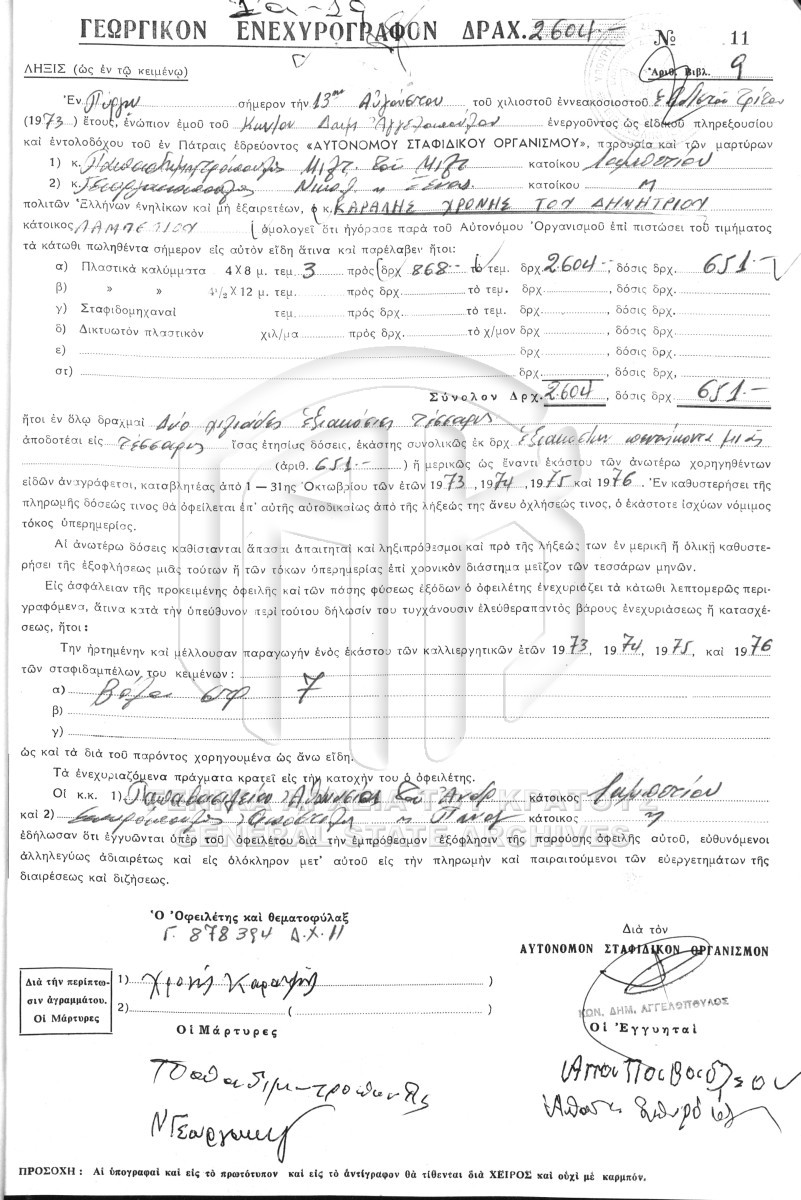 ΓΕΩΡΓΙΚΟΝ ΕΝΕΧΥΡΟΓΡΑΦΟΝ ΔΡΑΧ. 2604.-
№ 11
ΛΗΞΙΣ (ὡς ἐν τῷ κειμένῳ)
Ἀριθ. Βιβλ. 9
Ἐν Πύργῳ σήμερον τὴν 13ην Αὐγούστου τοῦ χιλιοστοῦ ἐννεακοσιοστοῦ Ἑβδομηκοστοῦ Τρίτου
(1973) ἔτους, ἐνώπιον ἐμοῦ τοῦ Κων/νου Δημ. Ἀγγελοπούλου ἐνεργοῦντος ὡς εἰδικοῦ πληρεξουσίου
καὶ ἐντολοδόχου τοῦ ἐν Πάτραις ἑδρεύοντος «ΑΥΤΟΝΟΜΟΥ ΣΤΑΦΙΔΙΚΟΥ ΟΡΓΑΝΙΣΜΟΥ», παρουσίᾳ καὶ τῶν μαρτύρων
1) κ. Παπαδημητρόπουλος Μιλτ. τοῦ Μιλτ. κατοίκου Λαμπετίου
2) κ. Γεωργακόπουλος Νικολ. κατοίκου "
πολιτῶν Ἑλλήνων ἐνηλίκων καὶ μὴ ἐξαιρετέων, ὁ κ. ΚΑΡΑΛΗΣ ΧΡΟΝΗΣ ΤΟΥ ΔΗΜΗΤΡΙΟΥ
κάτοικος ΛΑΜΠΕΤΙΟΥ ὁμολογεῖ ὅτι ἠγόρασε παρὰ τοῦ Αὐτονόμου Ὀργανισμοῦ ἐπὶ πιστώσει τοῦ τιμήματος
τὰ κάτωθι πωληθέντα σήμερον εἰς αὐτὸν εἴδη ἅτινα καὶ παρέλαβεν ἤτοι:
α) Πλαστικὰ καλύμματα 4Χ8 μ. τεμ. 3 πρὸς δρχ 868.- τὸ τεμ. δρχ. 2604.-, δόσις δρχ. 651.-
β) » » 4½Χ12 μ. τεμ. πρὸς δρχ. τὸ τεμ. δρχ. , δόσις δρχ.
γ) Σταφιδομηχαναὶ τεμ. πρὸς δρχ. τὸ τεμ. δρχ. , δόσις δρχ.
δ) Δικτυωτὸν πλαστικὸν χιλ/μα πρὸς δρχ. τὸ χ/μον δρχ. , δόσις δρχ.
ε) δρχ , δόσις δρχ.
στ) δρχ. , δόσις δρχ,
Σύνολον Δρχ. 2604 , δόσις δρχ. 651.-
ἤτοι ἐν ὅλῳ δραχμαὶ Δύο χιλιάδες ἑξακόσιες τέσσαρες
ἀποδοτέαι εἰς τέσσαρες ἴσας ἐτησίως δόσεις, ἑκάστης συνολικῶς ἐκ δρχ ἑξακοσίων πενήκοντα μιᾶς
(ἀριθ. 651.-) ἢ μερικῶς ὡς ἔναντι ἑκάστου τῶν ἀνωτέρω χορηγηθέντων
εἰδῶν ἀναγράφεται, καταβλητέας ἀπὸ 1 — 31ης Ὀκτωβρίου τῶν ἐτῶν 1973, 1974, 1975 καὶ 1976. Ἐν καθυστερήσει τῆς
πληρωμῆς δόσεώς τινος θὰ ὀφείλεται ἐπ' αὐτῆς αὐτοδικαίως ἀπὸ τῆς λήξεώς της ἄνευ ὀχλήσεώς τινος, ὁ ἑκάστοτε ἰσχύων νόμιμος
τόκος ὑπερημερίας.
Αἱ ἀνωτέρω δόσεις καθίστανται ἅπασαι ἀπαιτηταὶ καὶ ληξιπρόθεσμοι καὶ πρὸ τῆς λήξεώς των ἐν μερικῇ ἢ ὁλικῇ καθυστε-
ρήσει τῆς ἐξοφλήσεως μιᾶς τούτων ἢ τῶν τόκων ὑπερημερίας ἐπὶ χρονικὸν διάστημα μεῖζον τῶν τεσσάρων μηνῶν.
Εἰς ἀσφάλειαν τῆς προκειμένης ὀφειλῆς καὶ τῶν πάσης φύσεως ἐξόδων ὁ ὀφειλέτης ἐνεχυριάζει τὰ κάτωθι λεπτομερῶς περι-
γραφόμενα, ἅτινα κατὰ τὴν ὑπεύθυνον περὶ τούτου δήλωσίν του τυγχάνουσιν ἐλεύθεραπαντὸς βάρους ἐνεχυριάσεως ἢ κατασχέ-
σεως, ἤτοι:
Τὴν ἠρτημένην καὶ μέλλουσαν παραγωγὴν ἑνὸς ἑκάστου τῶν καλλιεργητικῶν ἐτῶν 1973, 1974, 1975, καὶ 1976
τῶν σταφιδαμπέλων του κειμένων:
α) στρ 7
β)
γ)
ὡς καὶ τὰ διὰ τοῦ παρόντος χορηγουμένα ὡς ἄνω εἴδη.
Τὰ ἐνεχυριαζόμενα πράγματα κρατεῖ εἰς τὴν κατοχήν του ὁ ὀφειλέτης.
Οἱ κ.κ. 1) Παπαβασιλείου τοῦ Ἀνδρ κάτοικος Λαμπετίου
καὶ 2) κάτοικος "
ἐδήλωσαν ὅτι ἐγγυῶνται ὑπὲρ τοῦ ὀφειλέτου διὰ τὴν ἐμπρόθεσμον ἐξόφλησιν τῆς παρούσης ὀφειλῆς αὐτοῦ, εὐθυνόμενοι
ἀλληλεγύως ἀδιαιρέτως καὶ εἰς ὁλόκληρον μετ' αὐτοῦ εἰς τὴν πληρωμὴν καὶ παιραιτούμενοι τῶν εὐεργετημάτων τῆς
διαιρέσεως καὶ διζήσεως.
GENERAL STATE ARCHIVES
Ὁ Ὀφειλέτης καὶ θεματοφύλαξ
Γ. 878394 Δ.Χ.11
Διὰ τὸν
ΑΥΤΟΝΟΜΟΝ ΣΤΑΦΙΔΙΚΟΝ ΟΡΓΑΝΙΣΜΟΝ
Διὰ τὴν περίπτω-
σιν ἀγραμμάτου.
Οἱ Μάρτυρες
1) Χρονης Καραλης )
2) ( )
ΚΩΝ. ΔΗΜ. ΑΓΓΕΛΟΠΟΥΛΟΣ
Οἱ Μάρτυρες
Οἱ Ἐγγυηταὶ
ΠΡΟΣΟΧΗ : Αἱ ὑπογραφαὶ καὶ εἰς τὸ πρωτότυπον καὶ εἰς τὸ ἀντίγραφον θὰ τίθενται διὰ ΧΕΙΡΟΣ καὶ οὐχὶ μὲ καρμπόν.